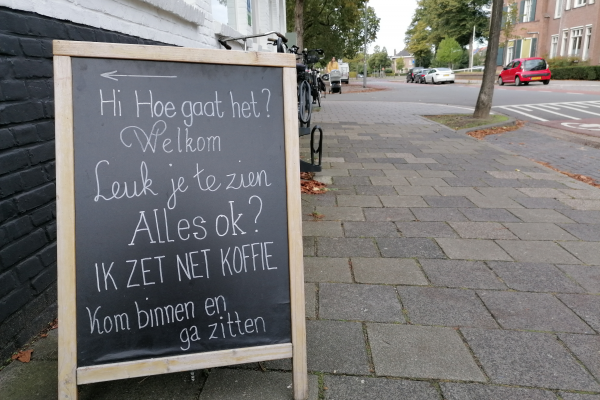 Hi Hoe gaat het?
Welkom
Leuk je te zien
Alles ok?
IK ZET NET KOFFIE
Kom binnen en
ga zitten